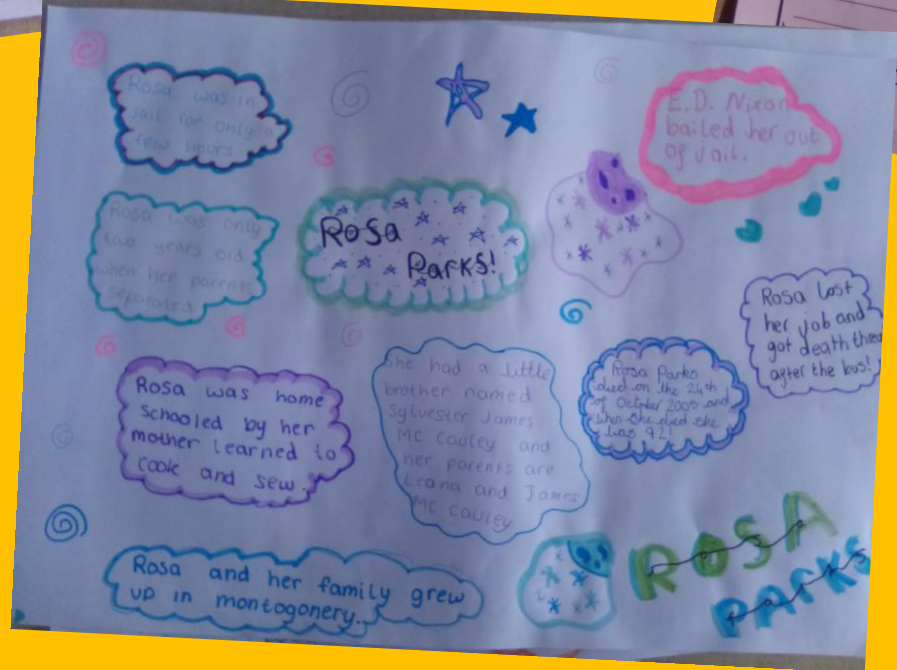 Rosa was in
jail for only a
few hours.
E.D. Nixon
bailed her out
of jail.
Rosa was only
two years old
when her parents
separated.
Rosa
Parks!
Rosa lost
her job and
got death threa
after the bus!
Rosa was home
schooled by her
mother learned to
cook and sew.
She had a little
brother named
Sylvester James
MC Cauley and
her parents are
Leona and James
MC Cauley
Rosa Parks
died on the 24th
of October 2005 and
when she died she
was 92!
Rosa and her family grew
up in montogonery.
ROSA
PARKS